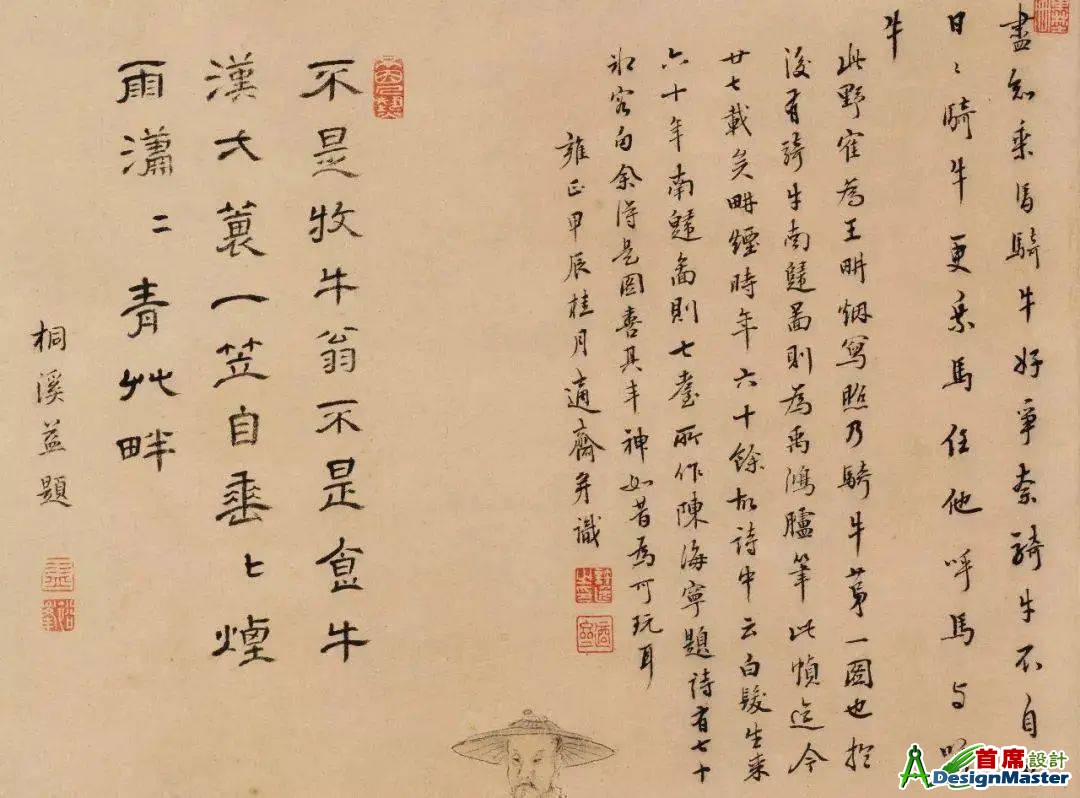 盡忘乘馬騎牛好爭奈騎牛不自
日〻騎牛更乘馬任他呼馬与呼
牛
此野寉為王畊烟寫照乃騎牛第一圖也
後有騎牛南歸圖則為禹鴻臚筆此幀迄今
廿七載矣畊煙時年六十餘故詩中云白髮生來
六十年南歸圖則七耋所作陳海寧題詩有七十
客句余得是圖喜其丰神如昔為可玩耳
雍正甲辰桂月適齋弁識
不是牧牛翁不是食牛
漢大蓑一笠自垂〻煙
雨瀟〻青艸畔
桐溪益題
首席設計
DesignMaster